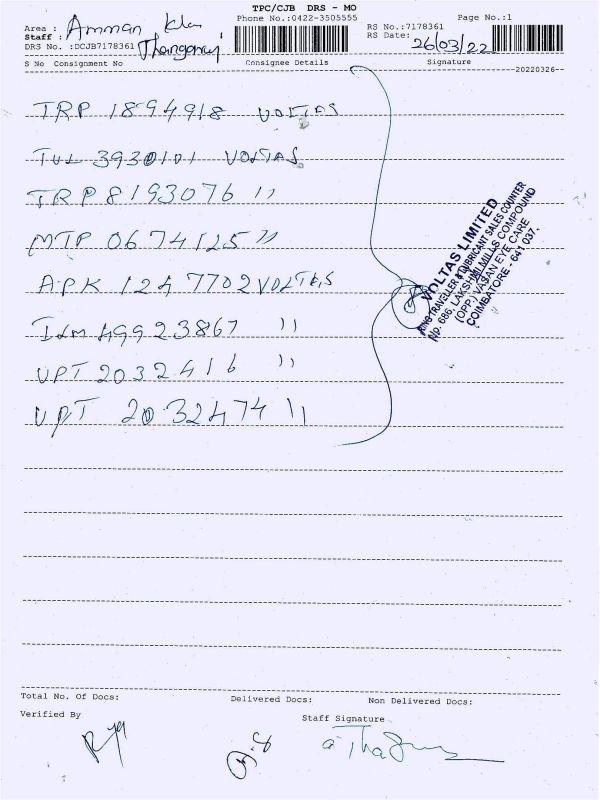 TPC/CJB DRS - MO
Phone No.:0422-3505555
Page No.:1
Area : Amman
Staff : Thangaraj
DRS No. :DCJB7178361
RS No.:7178361
RS Date: 26/03/22
S No Consignment No Consignee Details Signature
20220326
TRP 1894918 VOLTAS
TUL 3930101 VOLTAS
TRP 8193076 ''
MTP 0674125 ''
APK 1247702 VOLTAS
49923867 ''
UPT 2032416 ''
UPT 2032474 ''
VOLTAS LIMITED
TRAVELLER & LUBRICANT SALES COUNTER
No. 686, LAKSHMI MILLS COMPOUND
(OPP.) VASAN EYE CARE
COIMBATORE - 641 037.
Total No. Of Docs: Delivered Docs: Non Delivered Docs:
Verified By
Staff Signature